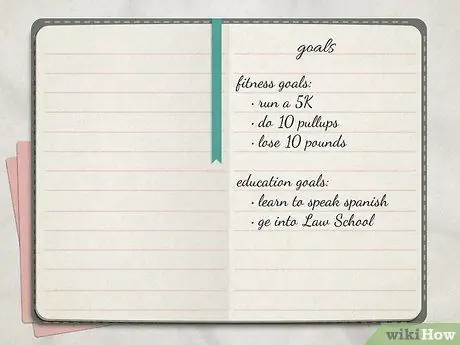 goals
fitness goals:
• run a 5K
• do 10 pullups
• lose 10 pounds
education goals:
• learn to speak spanish
• ge into Law School
wikiHow